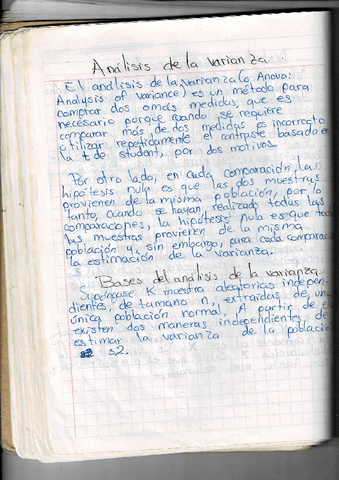 Análisis de la varianza.
El análisis de la varianza (o Anova:
Analysis of variance) es un método para
comprar dos omás medidas, que es
necesario porque cuando se requiere
comparar más de dos medidas es incorrecto
utilizar repetidamente el contraste basado en
la t de student, por dos motivos.
Por otro lado, en cada comparación, la
hipótesis nula es que las dos muestras
provienen de la misma población, por lo
tanto, cuando se hayan, realizado todas las
comparaciones, la hipótesis nula es que
las muestras provienen de la misma
población y, sin embargo, para cada
la estimación de la varianza.
Bases del análisis de la varianza
Supóngase K muestra alegtorias indepen-
dientes, de tamaño n, extraídas, de una
única población normal. A partir de
existen dos maneras independientes de
estimar la varianza de la població
s2.